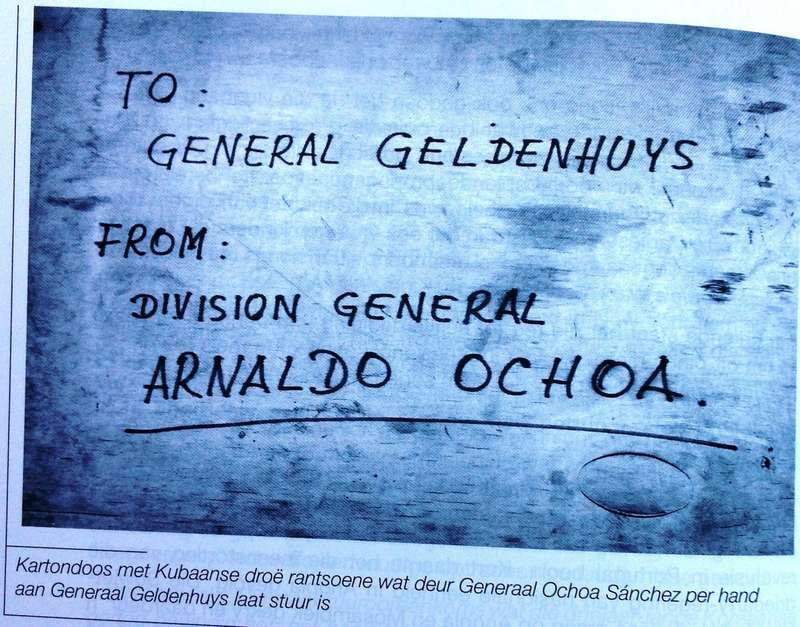 TO:
GENERAL GELDENHUYS
FROM:
DIVISION GENERAL
ARNALDO OCHOA.
Kartondoos met Kubaanse droë rantsoene wat deur Generaal Ochoa Sánchez per hand
aan Generaal Geldenhuys laat stuur is